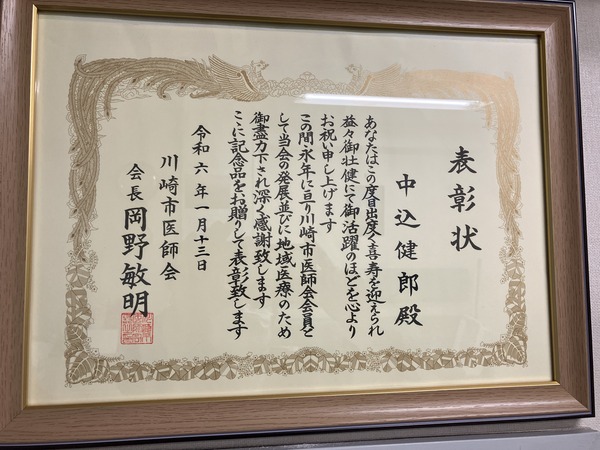 表彰状
中込健郎殿
あなたはこの度目出度く喜寿を迎えられ
益々御壮健にて御活躍のほどを心より
お祝い申し上げます
この間永年に亘り川崎市医師会会員と
して当会の発展並びに地域医療のため
御盡力下され深く感謝致します
ここに記念品をお贈りして表彰致します
令和六年一月十三日
川崎市医師会
会長 岡野敏明